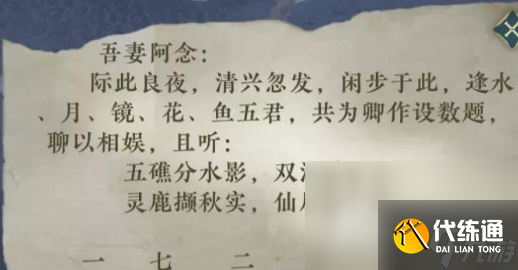 吾妻阿念：
际此良夜，清兴忽发，闲步于此，逢水
、月、镜、花、鱼五君，共为卿作设数题，
聊以相娱，且听：
五礁分水影，双
灵鹿撷秋实，仙
一 七 二
代练通
DAI LIAN TONG